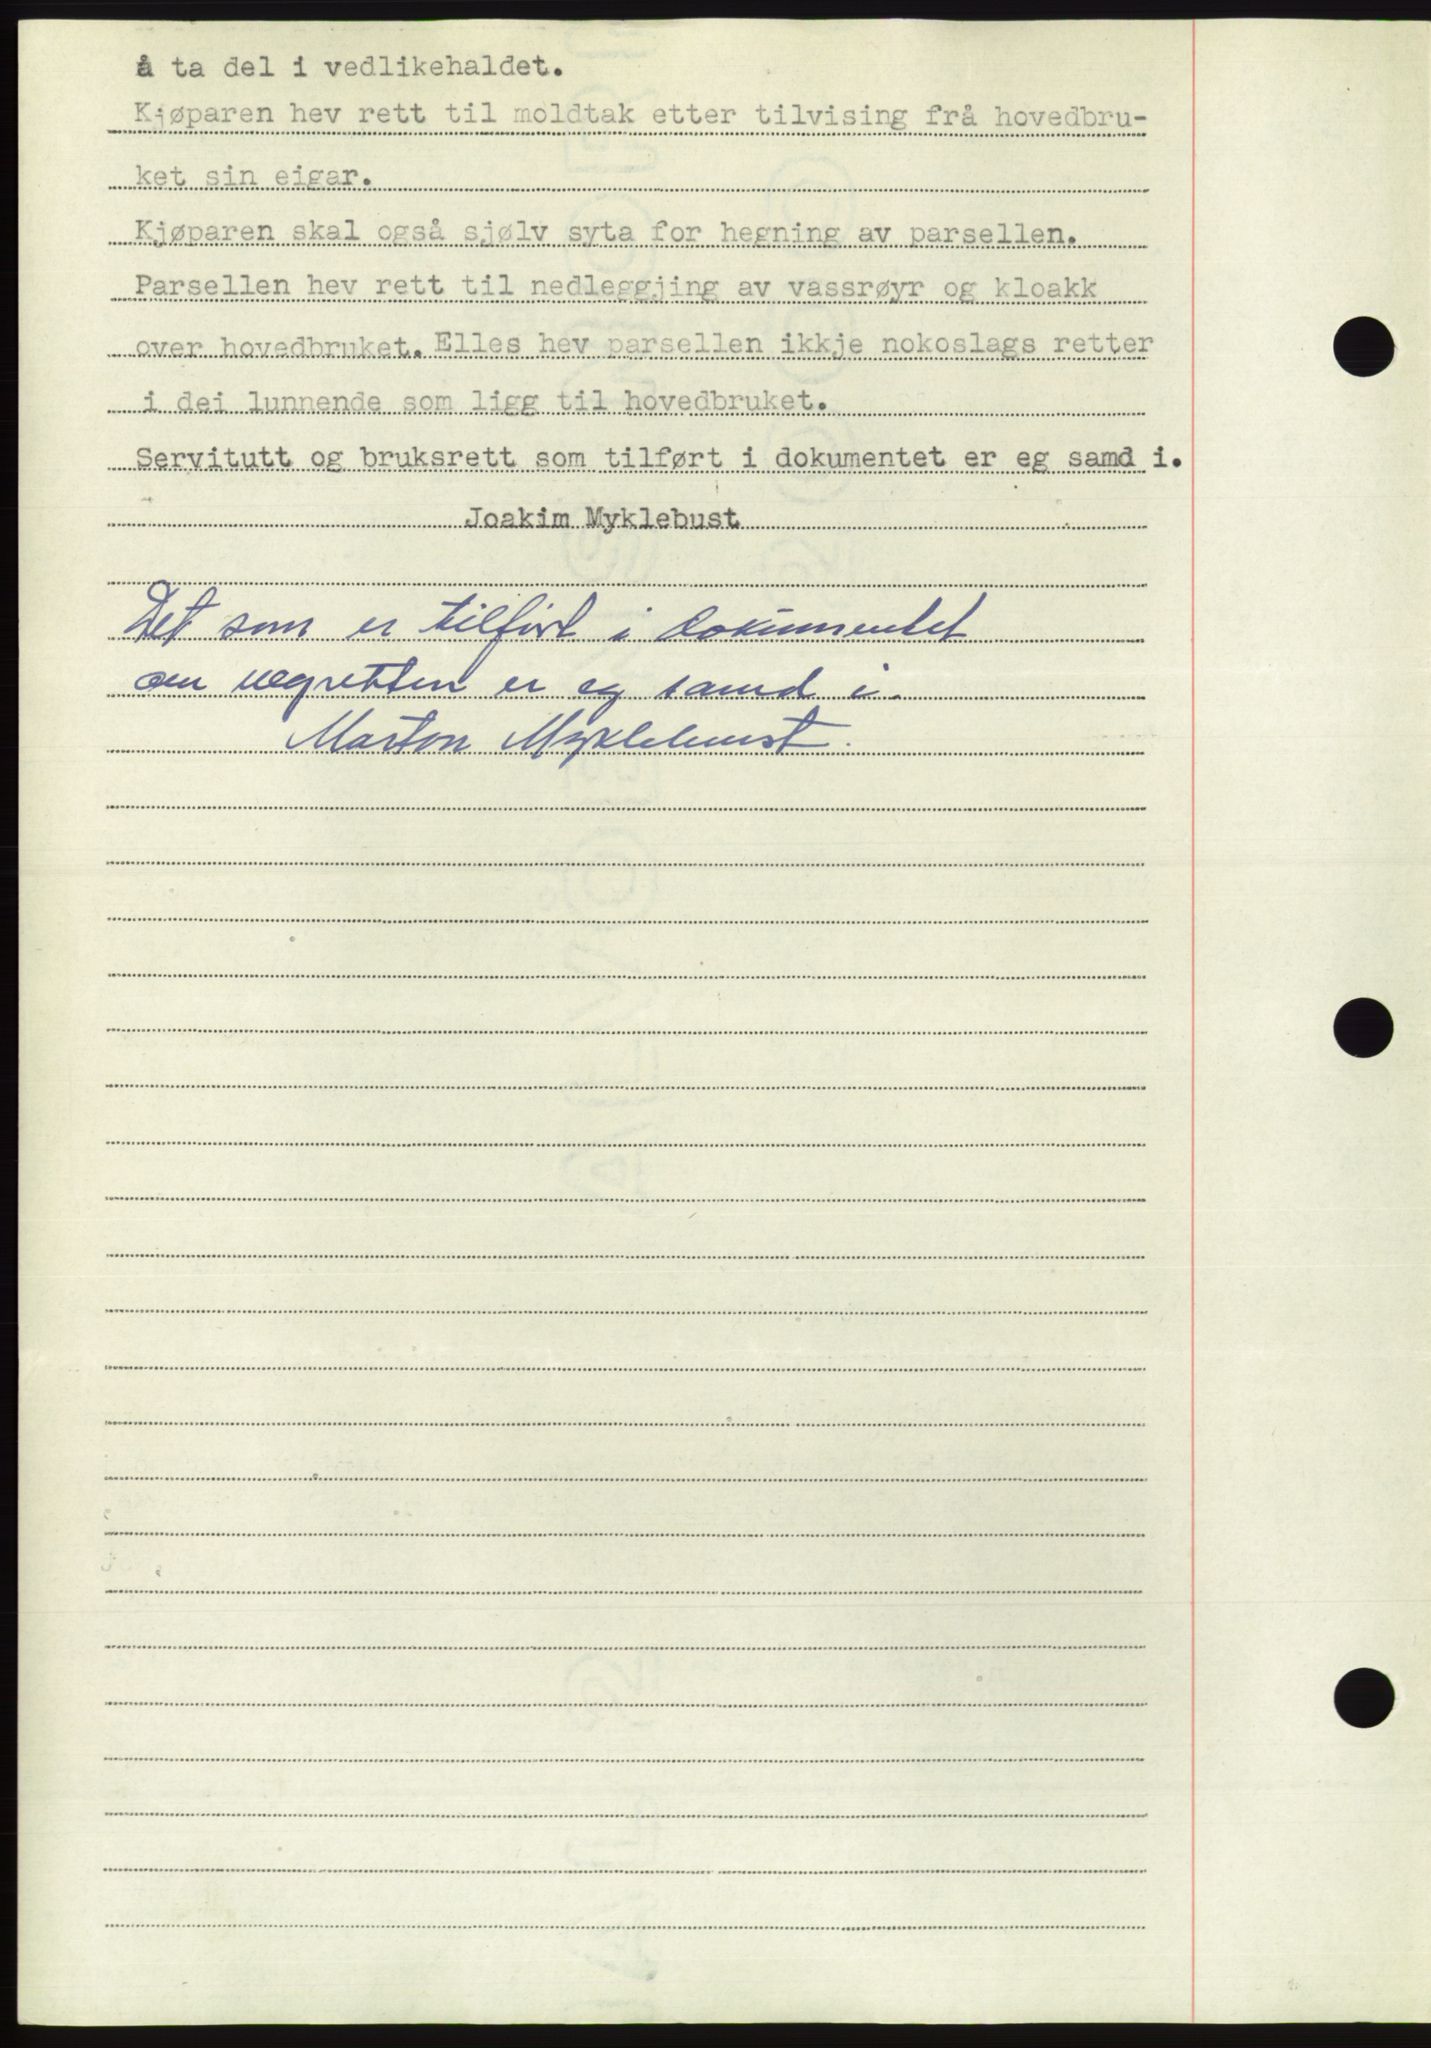 å ta del i vedlikehaldet.
Kjøparen hev rett til moldtak etter tilvising frå hovedbru-
ket sin eigar.
Kjøparen skal også sjølv syta for hegning av parsellen.
Parsellen hev rett til nedleggjing av vassrøyr og kloakk
over hovedbruket. Elles hev parsellen ikkje nokoslags retter
i dei lunnende som ligg til hovedbruket.
Servitutt og bruksrett som tilført i dokumentet er eg samd i.
Joakim Myklebust
Det som er tilført i dokumentet
om vegretten er eg samd i.
Marton Myklebust.